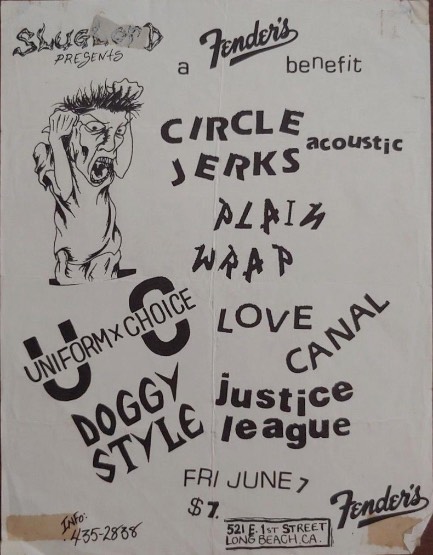 SLUGLORD
PRESENTS
a Fender's benefit
CIRCLE
JERKS acoustic
PLAIN
WRAP
UNIFORM X CHOICE
U C
LOVE
CANAL
DOGGY
STYLE
justice
league
FRI JUNE 7
$7.
INFO:
435-2838
521 E. 1st STREET
LONG BEACH, CA.
Fender's